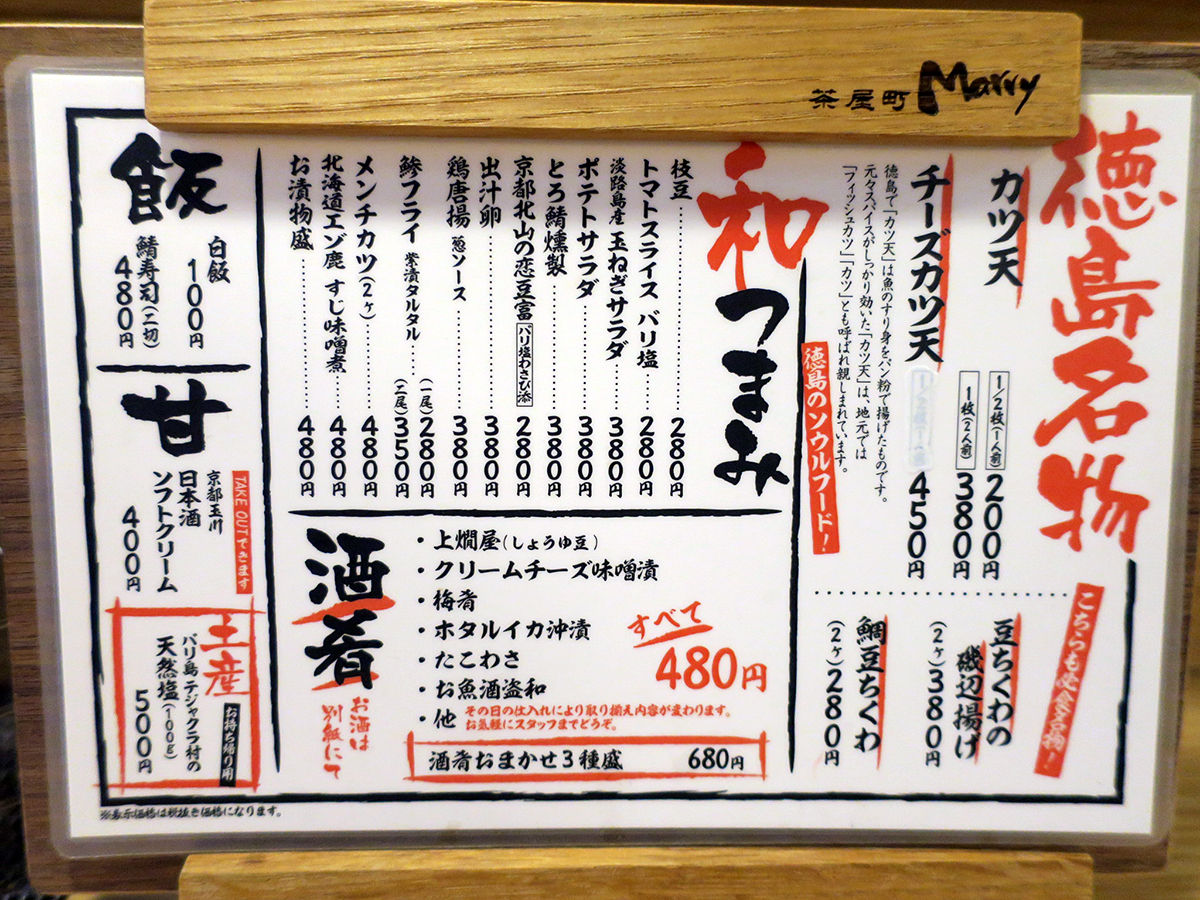 茶屋町 Marry
徳島名物
カツ天
1/2枚(1人前) 200円
1枚(2人前) 380円
チーズカツ天
450円
徳島で「カツ天」は魚のすり身をパン粉で揚げたものです。
元々スパイスがしっかり効いた「カツ天」は、地元では
「フィッシュカツ」「カツ」とも呼ばれ親しまれています。
徳島のソウルフード!
こちらも必食名物!
豆ちくわの
磯辺揚げ
(2ヶ)380円
鯛豆ちくわ
(2ヶ)280円
和つまみ
枝豆 280円
トマトスライス バリ塩 280円
淡路島産 玉ねぎサラダ 380円
ポテトサラダ 380円
とろ鯖燻製 380円
京都北山の恋豆富 バリ塩わさび添 280円
出汁卵 380円
鶏唐揚 葱ソース 380円
鯵フライ 柴漬タルタル (一尾)280円
(二尾)350円
メンチカツ(2ヶ) 480円
北海道エゾ鹿 すじ味噌煮 480円
お漬物盛 480円
酒肴
お酒は
別紙にて
・上燗屋(しょうゆ豆)
・クリームチーズ味噌漬
・梅肴
・ホタルイカ沖漬
・たこわさ
・お魚酒盗和
・他
すべて
480円
その日の仕入れにより取り揃え内容が変わります。
お気軽にスタッフまでどうぞ。
酒肴おまかせ3種盛 680円
飯
白飯
100円
鯖寿司(二切)
480円
甘
TAKE OUTできます
京都玉川
日本酒
ソフトクリーム
400円
土産
お持ち帰り用
バリ島 テジャクラ村の
天然塩(100g)
500円
※表示価格は税抜き価格になります。